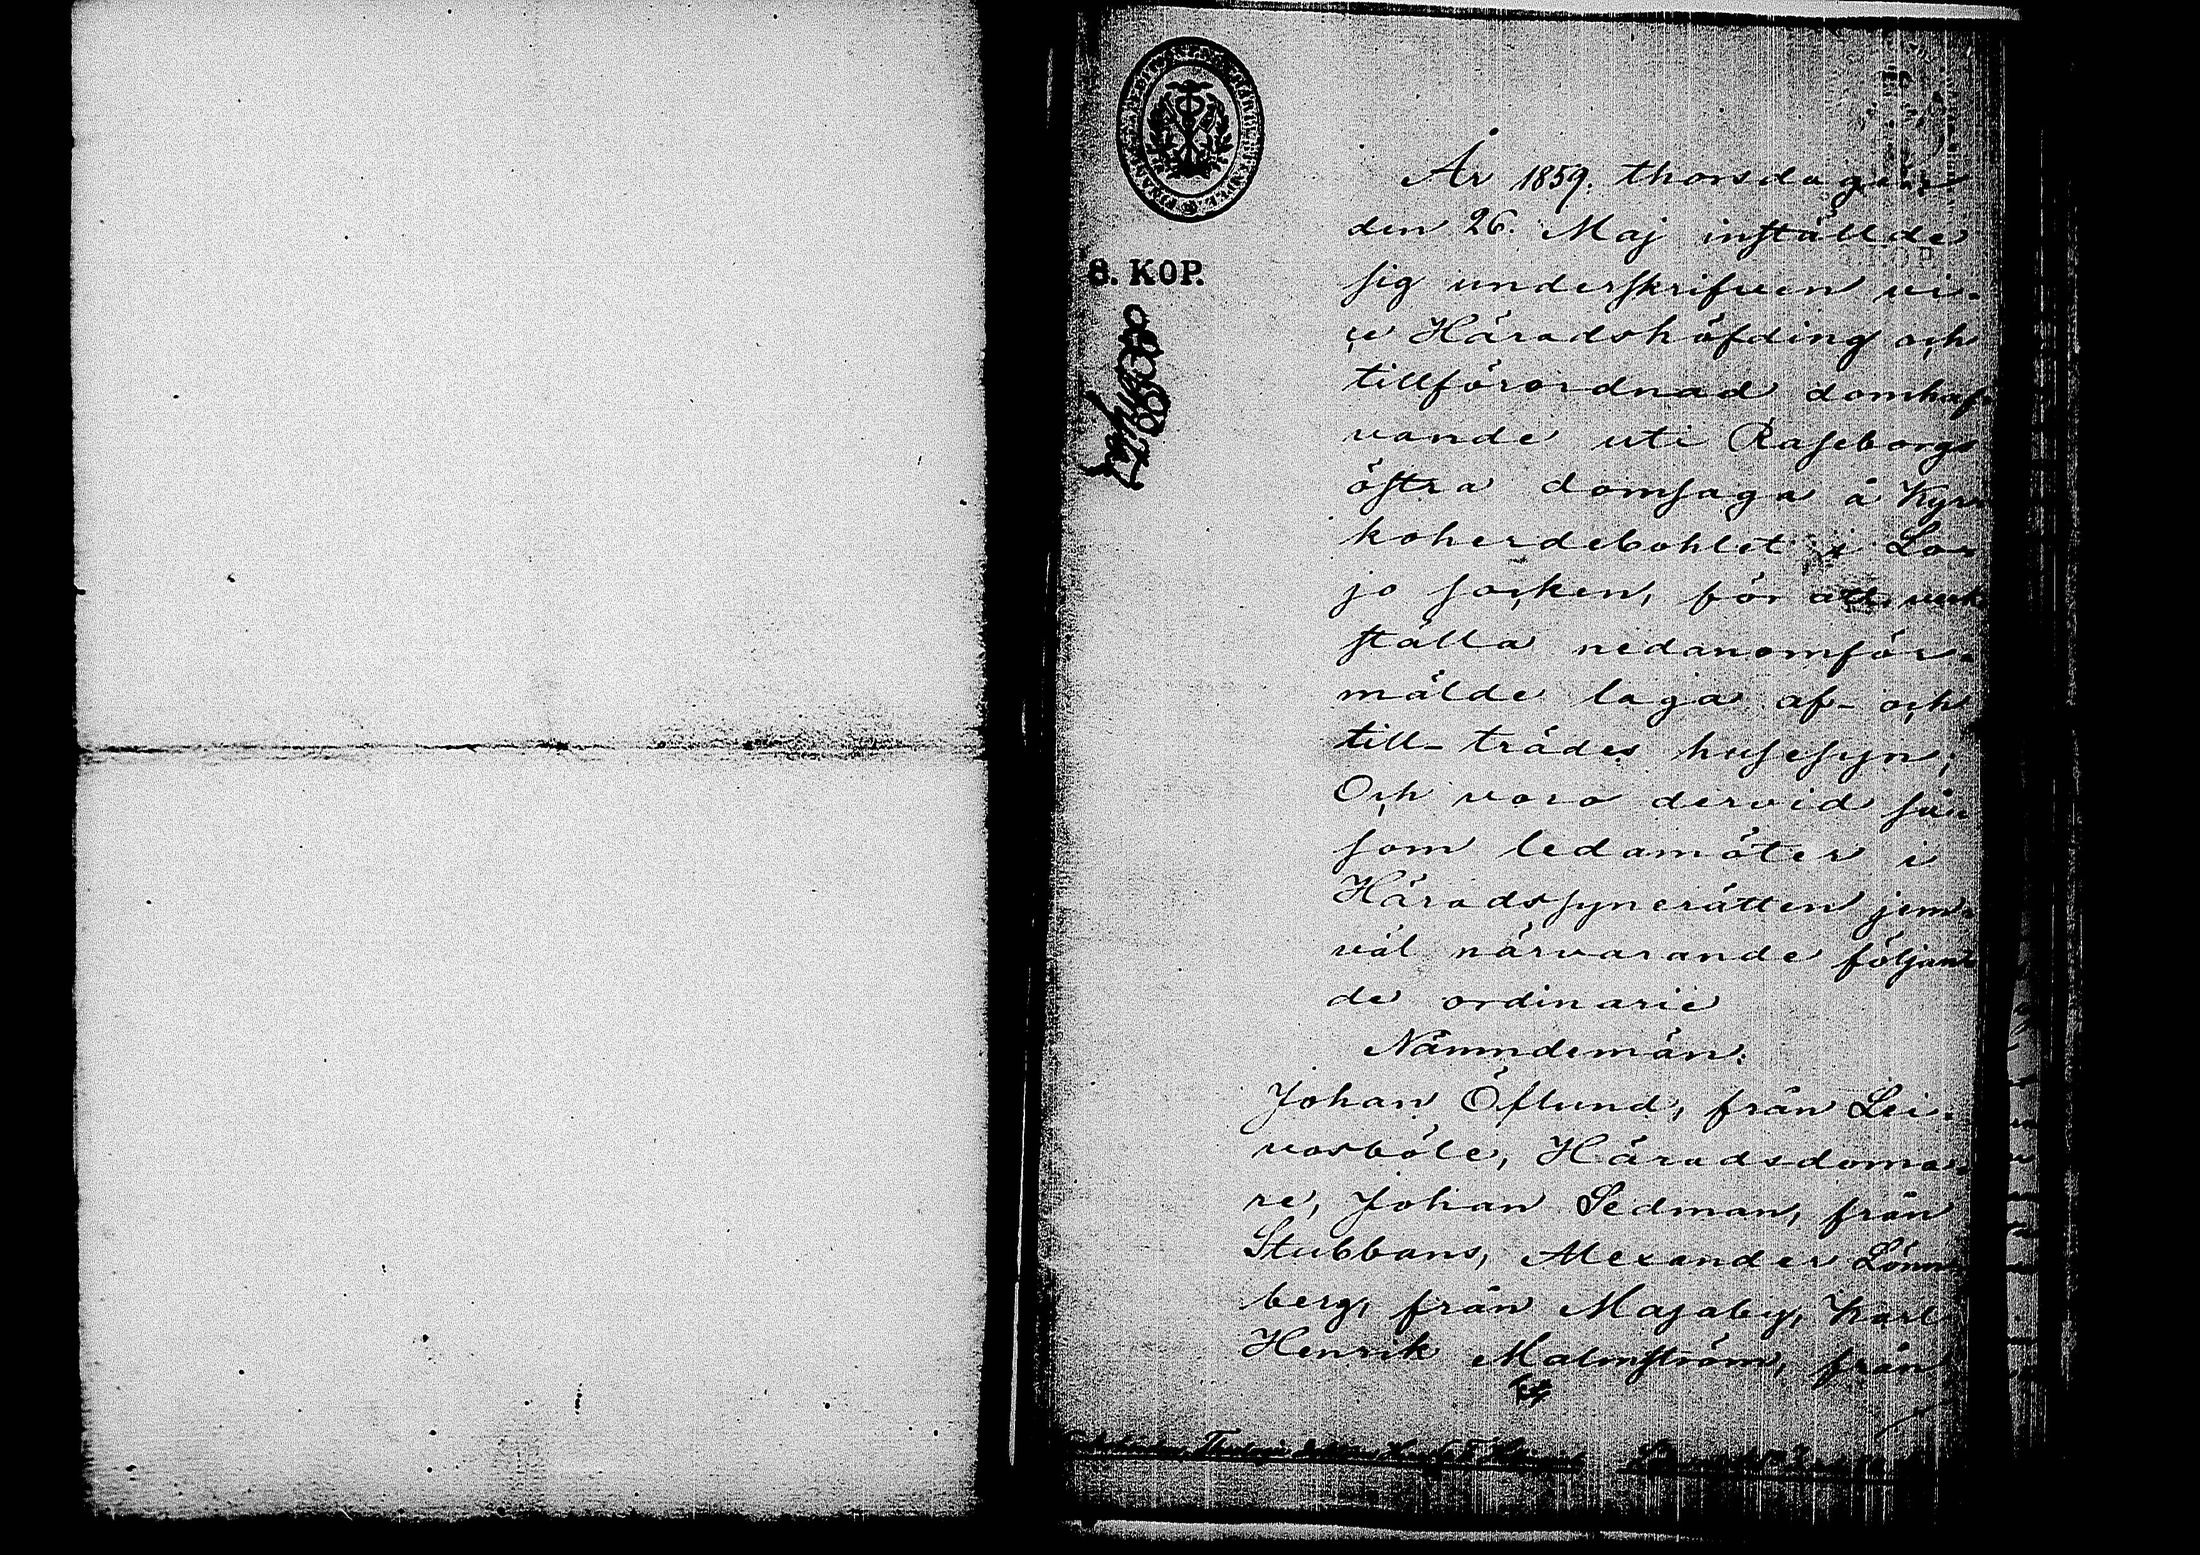 8. KOP.
År 1859. thorsdagen
den 26. Maj inställde
sig underskrifven vi-
ce Häradshöfding och
tillförordnad domhaf-
vande uti Raseborgs
östra domsaga å Kyr-
koherdebohlet i Lo-
jo socken, för att verk-
ställa nedanomför-
mälde laga af- och
till- trädes husesyn;
Och voro dervid så-
som ledamöter i
Häradssynerätten jem-
väl närvarande följan-
de ordinarie
Nämndemän:
Johan Öflund, från Lei-
vosböle, Häradsdoma-
re, Johan Sedman, från
Stubbans, Alexander Lönn-
berg, från Majaby, Karl
Henrik Malmström, från